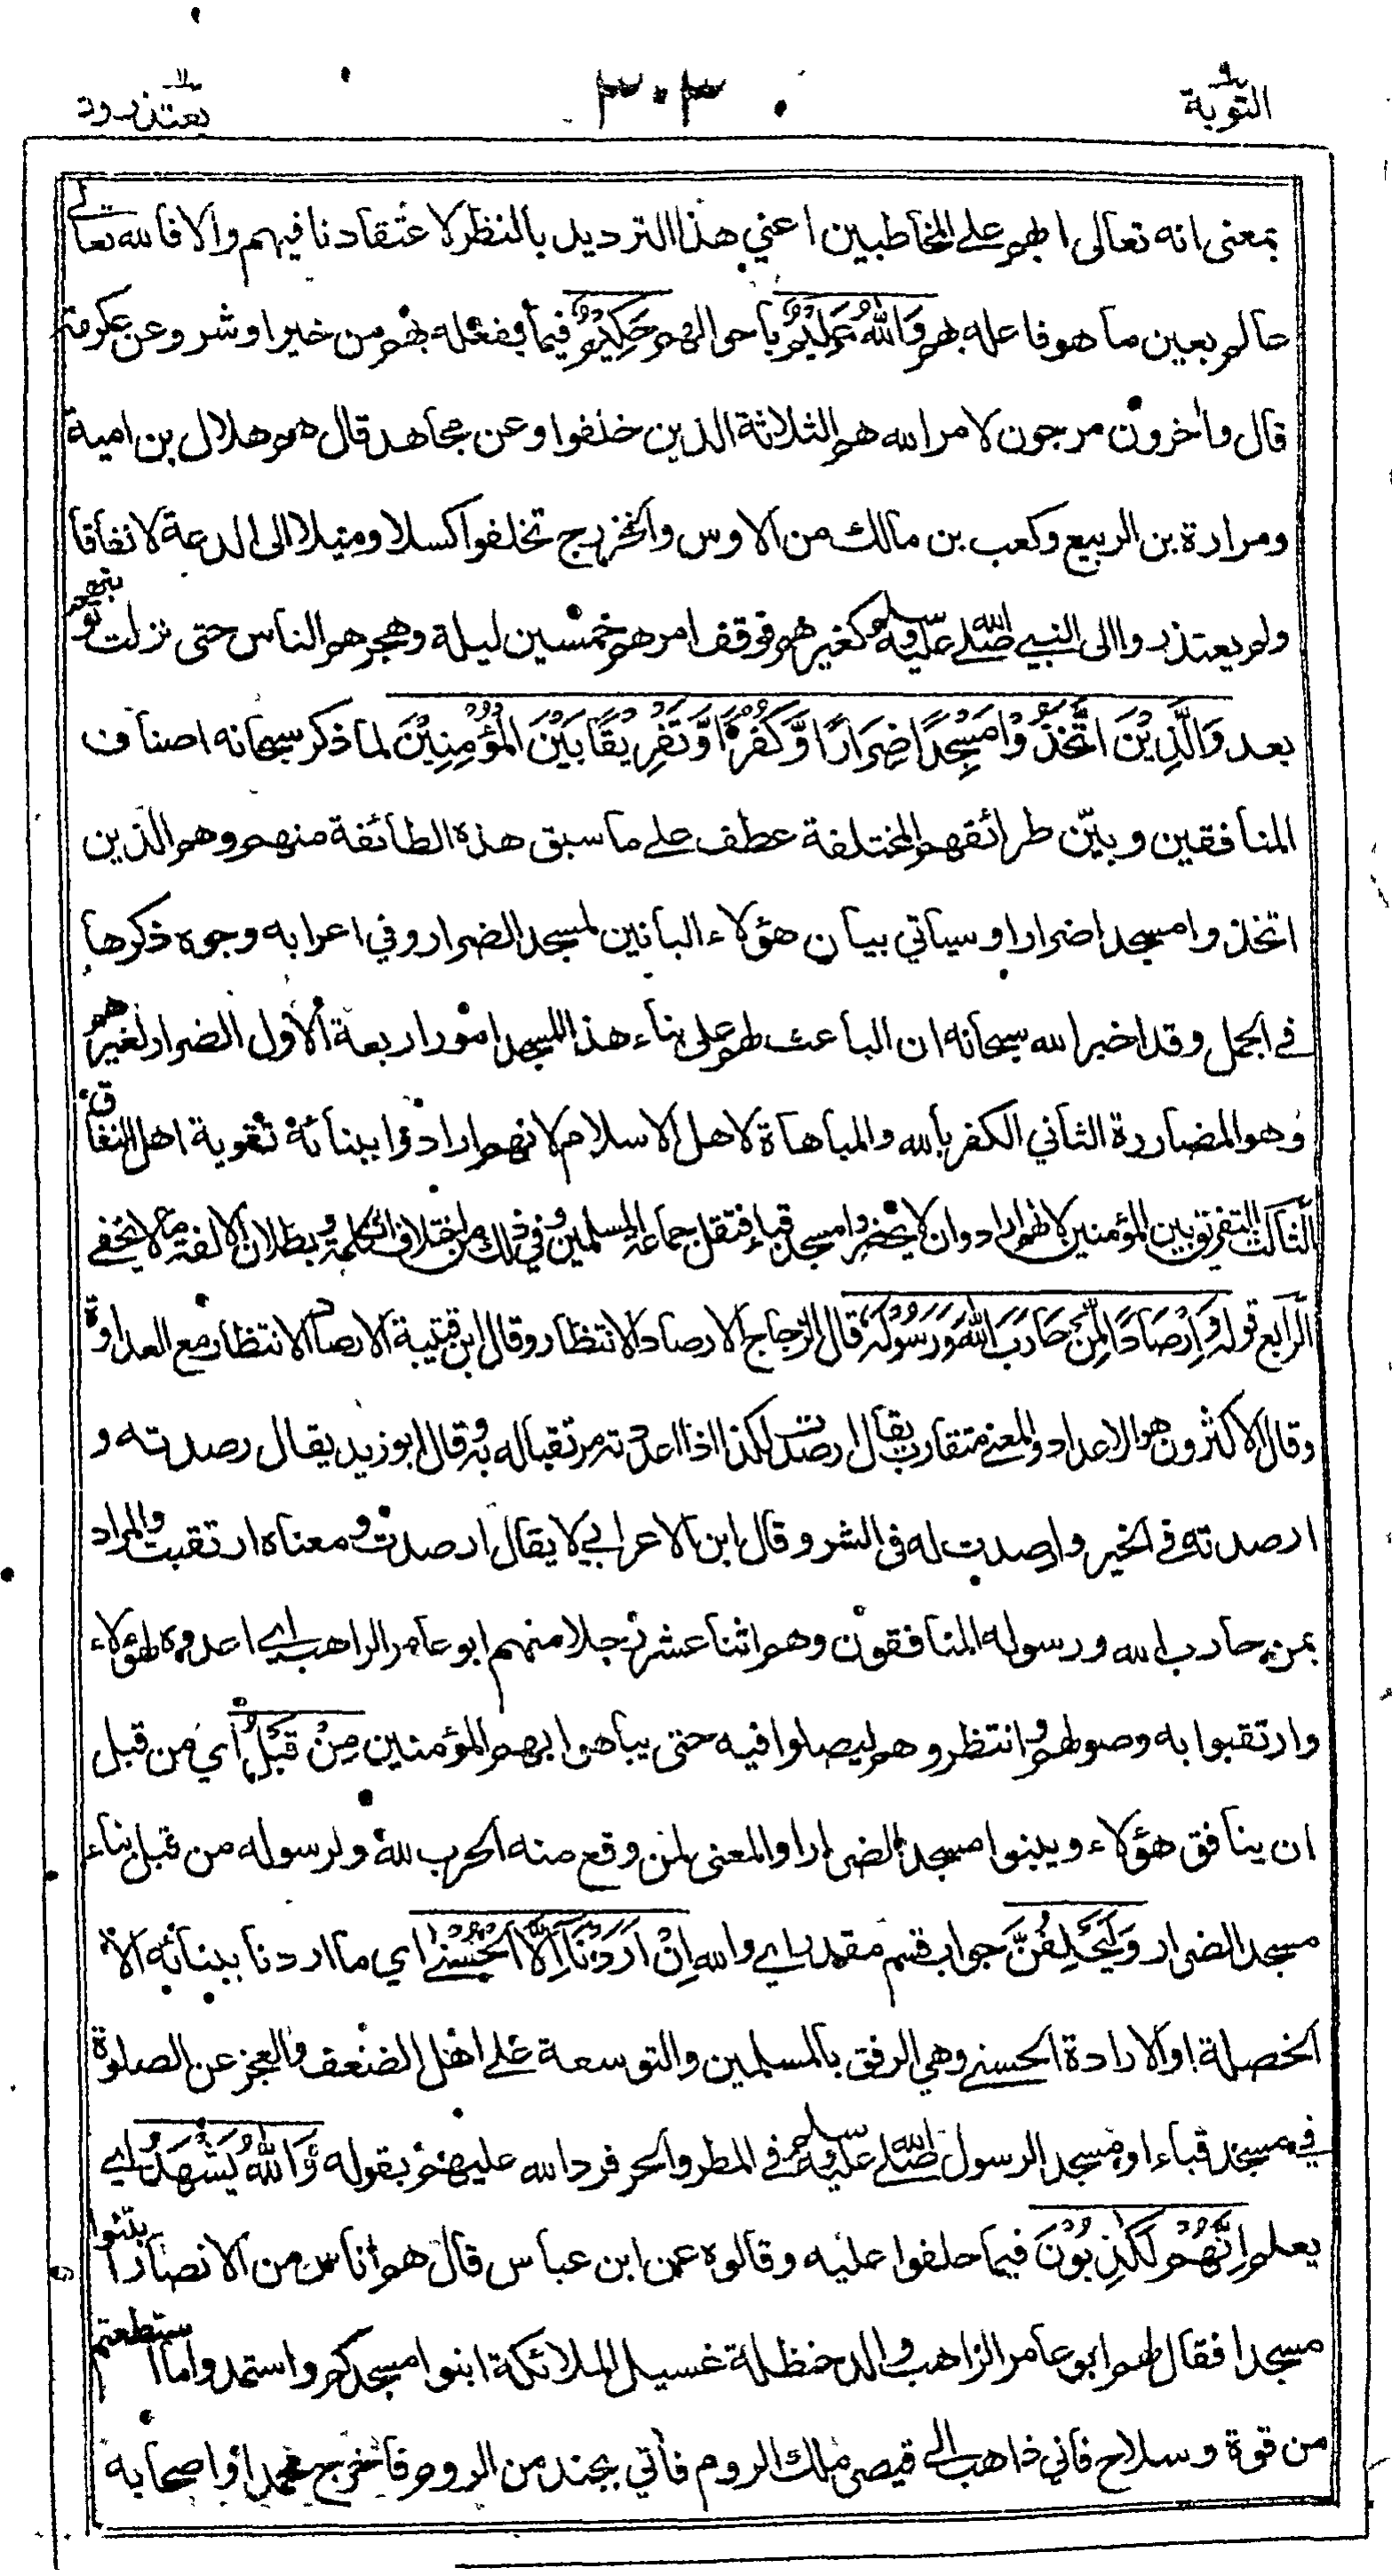 التوبة ٩
٣٠٣
يعتذرون ١١
بمعنى انه تعالى ابهم على المخاطبين اعني هذا الترديد بالنظر لاعتقادنا فيهم والا فالله تعالى
حالهم بعين ما هو فاعله بهم وَاللّٰهُ عَلِيْمٌ باحوالهم حَكِيْمٌ فيما يفعله بهم من خير او شر وعن عكرمة
قال واخرون مرجون لامر الله هم الثلاثة الذين خلفوا وعن مجاهد قال هم هلال بن امية
ومرارة بن الربيع وكعب بن مالك من الاوس والخزرج تخلفوا كسلا وميلا الى الدعة لا نفاقا
ولم يعتذروا الى النبي صلى الله عليه وسلم كغيرهم فوقف امرهم خمسين ليلة وهجرهم الناس حتى نزلت توبتهم
بعد وَالَّذِيْنَ اتَّخَذُوْا مَسْجِدًا ضِرَارًا وَّكُفْرًا وَّتَفْرِيْقًا بَيْنَ الْمُؤْمِنِيْنَ لما ذكر سبحانه اصناف
المنافقين وبيّن طرائقهم المختلفة عطف على ما سبق هذه الطائفة منهم وهم الذين
اتخذوا مسجدا ضرارا وسيأتي بيان هؤلاء البانين لمسجد الضرار وفي اعرابه وجوه ذكرها
في الجمل وقد اخبر الله سبحانه ان الباعث لهم على بناء هذا المسجد امور اربعة الاول الضرار لغيرهم
وهو المضاررة الثاني الكفر بالله والمباهاة لاهل الاسلام لانهم ارادوا ببنائه تقوية اهل النفاق
الثالث التفريق بين المؤمنين لانهم ارادوا ان لا يحضروا مسجد قباء فتقل جماعة المسلمين وفي ذلك من اختلاف الكلمة وبطلان الالفة ما لا يخفى
الرابع قوله وَاِرْصَادًا لِّمَنْ حَارَبَ اللّٰهَ وَرَسُوْلَهٗ قال الزجاج الارصاد الانتظار وقال ابن قتيبة الارصاد الانتظار مع العداوة
وقال الاكثرون هو الاعداد والمعنى متقارب يقال ارصدت لكذا اذا اعددته مرتقبا له به وقال ابو زيد يقال رصدته و
ارصدته في الخير وارصدت له في الشر وقال ابن الاعرابي لا يقال ارصدت ومعناه ارتقبت والمراد
بمن حارب الله ورسوله المنافقون وهم اثنا عشر رجلا منهم ابو عامر الراهب اي اعدوه لهؤلاء
وارتقبوا به وصولهم وانتظروهم ليصلوا فيه حتى يباهوا بهم المؤمنين مِنْ قَبْلُ اي من قبل
ان ينافق هؤلاء ويبنوا مسجد الضرار او المعنى لمن وقع منه الحرب لله ولرسوله من قبل بناء
مسجد الضرار وَلَيَحْلِفُنَّ جواب قسم مقدر اي والله اِنْ اَرَدْنَا اِلَّا الْحُسْنٰى اي ما اردنا ببنائه الا
الخصلة او الارادة الحسنى وهي الرفق بالمسلمين والتوسعة على اهل الضعف والعجز عن الصلوة
في مسجد قباء او مسجد الرسول صلى الله عليه وسلم في المطر والحر فرد الله عليهم بقوله وَاللّٰهُ يَشْهَدُ اي
يعلم اِنَّهُمْ لَكٰذِبُوْنَ فيما حلفوا عليه وقالوه عن ابن عباس قال هم اناس من الانصار ابتنوا
مسجدا فقال لهم ابو عامر الراهب والد حنظلة غسيل الملائكة ابنوا مسجدكم واستمدوا ما استطعتم
من قوة وسلاح فاني ذاهب الى قيصر ملك الروم فأتي بجند من الروم فاخرج محمدا واصحابه